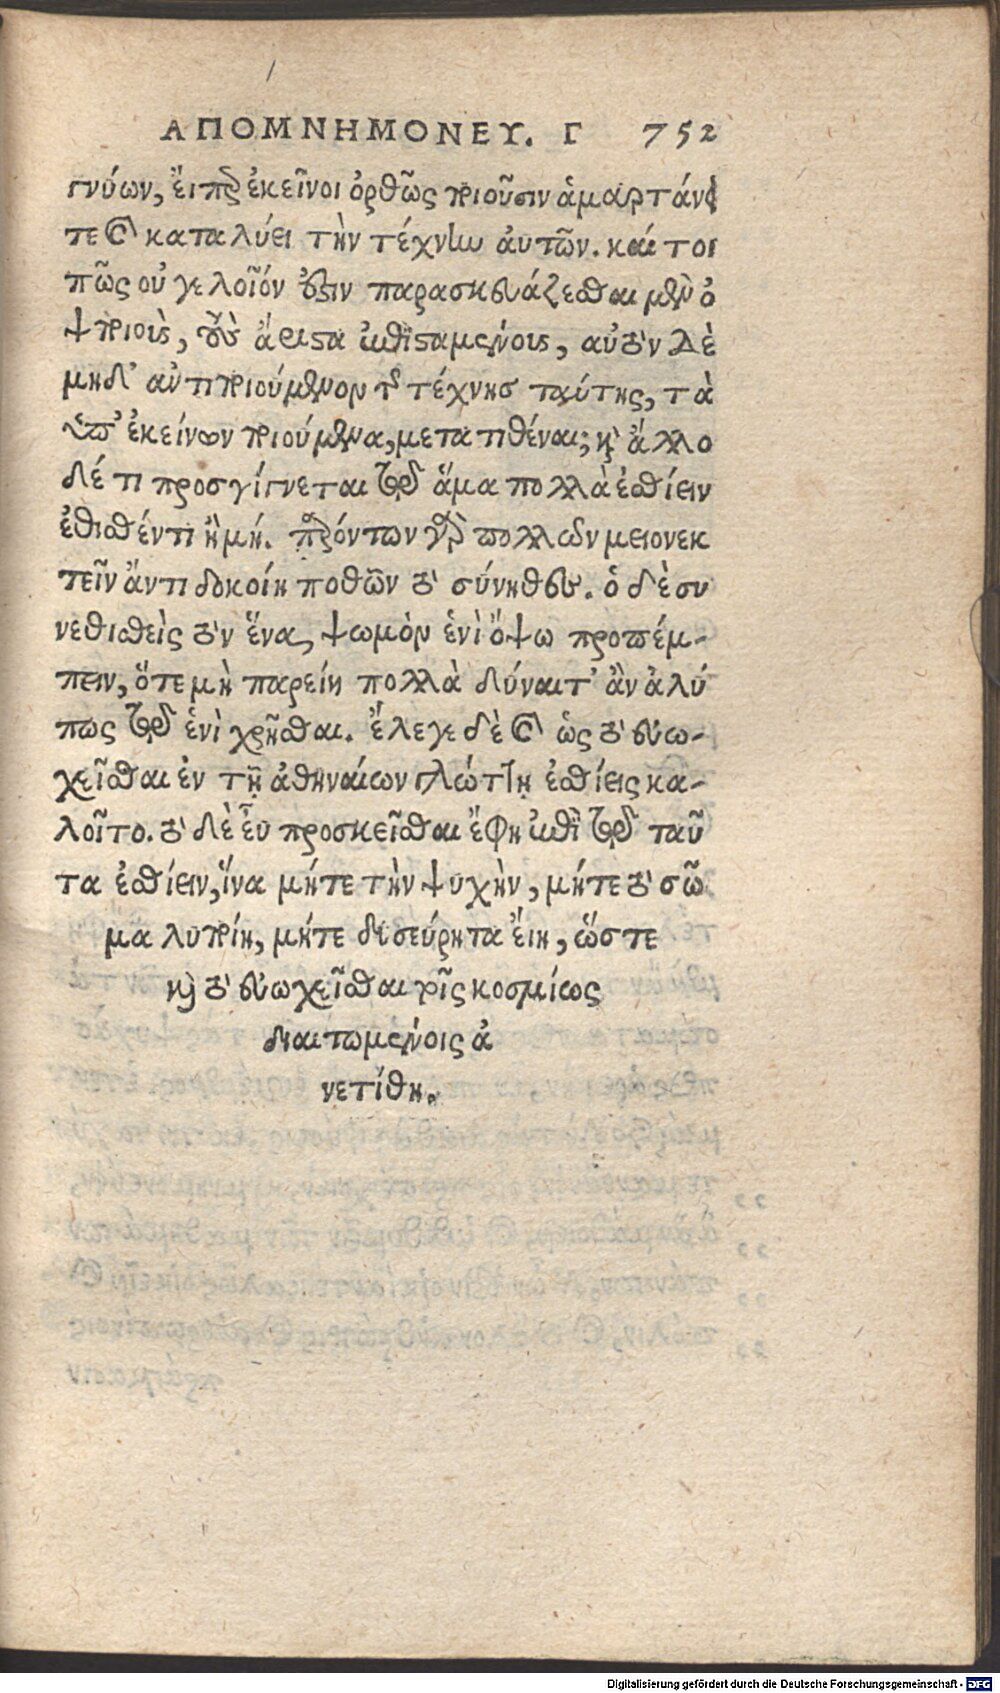 ΑΠΟΜΝΗΜΟΝΕΥ. Γ 752
γνύων, εἴπερ ἐκεῖνοι ὀρθῶς ποιοῦσιν ἁμαρτάνει
τε καὶ καταλύει τὴν τέχνην ἀυτῶν. καίτοι
πῶς οὐ γελοῖόν ἐστιν παρασκευάζεσθαι μὲν ὀ
ψοποιοὺς, τοὺς ἄριστα ἐπισταμένους, αὐτὸν δὲ
μηδ' αὐτιποιούμενον τῆς τέχνης ταύτης, τὰ
ὑπ' ἐκείνων ποιούμενα, μετατιθέναι; καὶ ἄλλο
δέ τι προσγίγνεται τῷ ἅμα πολλὰ ἐσθίειν
ἐθισθέντι ἢ μή. παρόντων γὰρ πολλῶν μειονεκ
τεῖν ἄντι δοκοίη ποθῶν τὸ σύνηθες. ὁ δὲ συ
νεθισθεὶς τὸν ἕνα ψωμὸν ἑνὶ ὄψω προπέμ-
πειν, ὅτε μὴ παρείη πολλὰ δύναιτ' ἂν ἀλύ
πως τῷ ἑνὶ χρῆσθαι. ἔλεγε δὲ καὶ ὡς τὸ εὐω-
χεῖσθαι ἐν τῇ ἀθηναίων γλώττῃ ἐσθίεις κα-
λοῖτο. τὸ δὲ εὖ προσκεῖσθαι ἔφη ἐπὶ τῷ ταῦ
τα ἐσθίειν, ἵνα μήτε τὴν ψυχὴν, μήτε τὸ σῶ
μα λυποίη, μήτε δυσεύρητα εἴη, ὥστε
καὶ τὸ εὐωχεῖσθαι τοῖς κοσμίως
διαιτωμένοις ἀ
νετίθη.
Digitalisierung gefördert durch die Deutsche Forschungsgemeinschaft - DFG